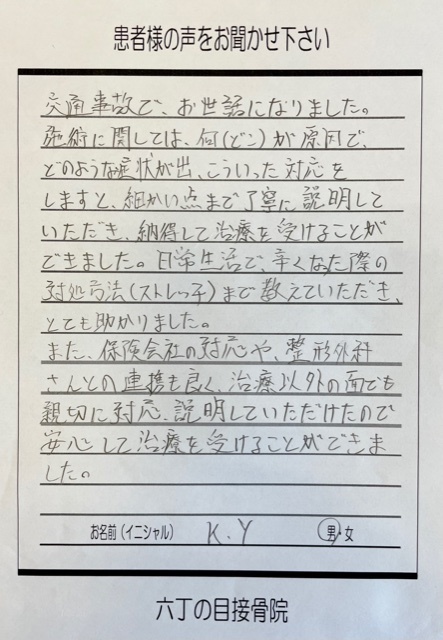 患者様の声をお聞かせ下さい
交通事故で、お世話になりました。
施術に関しては、何(どこ)が原因で、
どのような症状が出、こういった対応を
しますと、細かい点まで丁寧に説明して
いただき、納得して治療を受けることが
できました。日常生活で、辛くなった際の
対処方法(ストレッチ)まで教えていただき、
とても助かりました。
また、保険会社の対応や、整形外科
さんとの連携も良く、治療以外の面でも
親切に対応、説明していただけたので
安心して治療を受けることができま
した。
お名前(イニシャル) K.Y 男・女
六丁の目接骨院